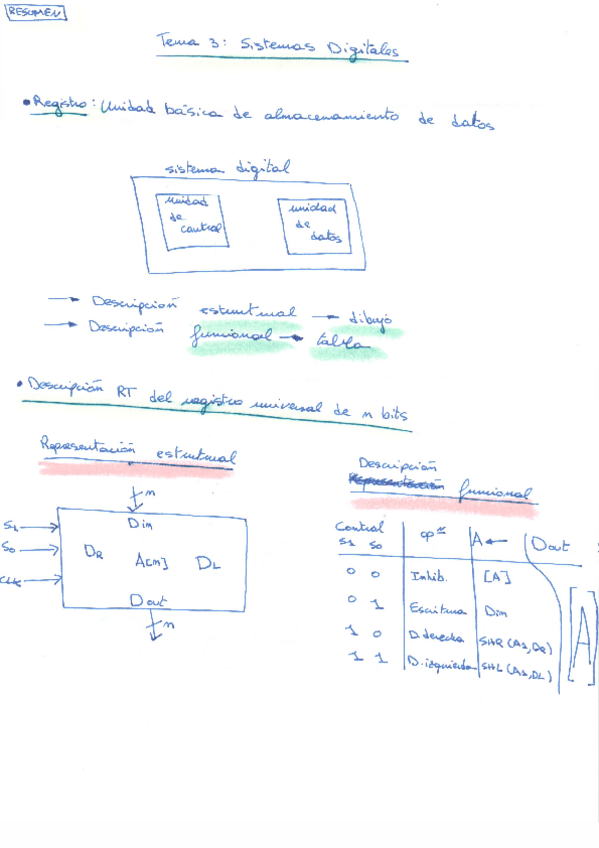 RESUMEN
Tema 3: Sistemas Digitales
• Registro: Unidad básica de almacenamiento de datos
sistema digital
unidad de control
unidad de datos
→ Descripción estructural → dibujo
→ Descripción funcional → tabla
• Descripción RT del registro universal de n bits
Representación estructural
n
Din
S1
S0
CLK
DR A[n] DL
Dout
n
Descripción
Representación funcional
Control
S1 S0 opᵉˢ A ← Dout
0 0 Inhib. [A]
0 1 Escritura Din
1 0 D. derecha SHR (A1, DR)
1 1 D. izquierda SHL (A1, DL)
[A]